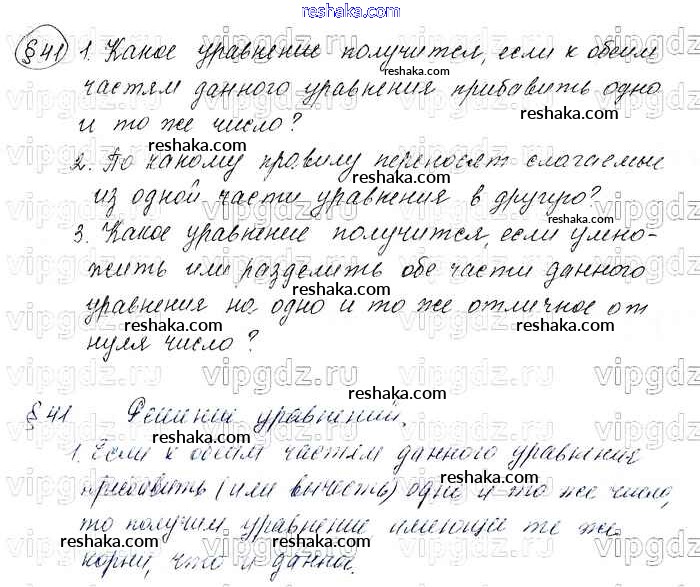 reshaka.ru
§41 1. Какое уравнение получится, если к обеим
частям данного уравнения прибавить одно
и то же число?
2. По какому правилу переносят слагаемые
из одной части уравнения в другую?
3. Какое уравнение получится, если умно-
жить или разделить обе части данного
уравнения на одно и то же отличное от
нуля число?
§41 Решение уравнений.
1. Если к обеим частям данного уравнения
прибавить (или вычесть) одно и то же число,
то получим уравнение имеющий те же
корни, что и данный.